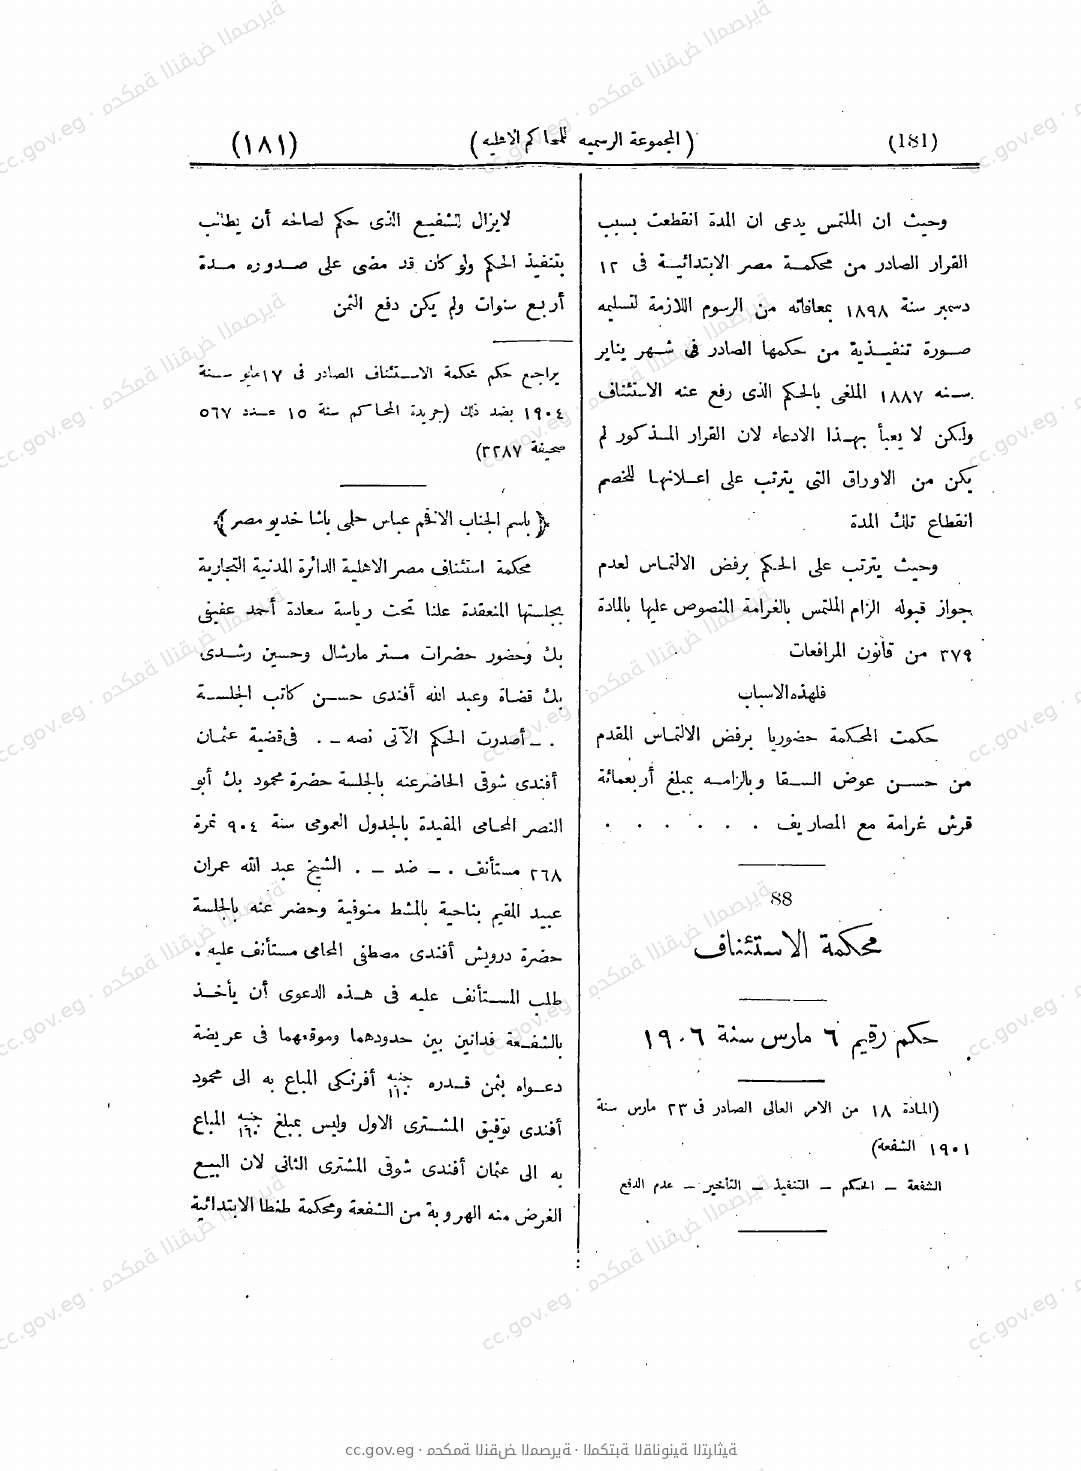 (181) (المجموعة الرسمية للمحاكم الاهلية) (١٨١)
وحيث ان الملتمس يدعى ان المدة انقطعت بسبب
القرار الصادر من محكمة مصر الابتدائية فى ١٢
دسمبر سنة ١٨٩٨ بمعافاته من الرسوم اللازمة لتسليمه
صورة تنفيذية من حكمها الصادر فى شهر يناير
سنه ١٨٨٧ الملغى بالحكم الذى رفع عنه الاستئناف
ولكن لا يعبأ بهذا الادعاء لان القرار المذكور لم
يكن من الاوراق التى يترتب على اعلانها للخصم
انقطاع تلك المدة
وحيث يترتب على الحكم برفض الالتماس لعدم
جواز قبوله الزام الملتمس بالغرامة المنصوص عليها بالمادة
٣٧٩ من قانون المرافعات
فلهذه الاسباب
حكمت المحكمة حضوريا برفض الالتماس المقدم
من حسن عوض السقا وبالزامه بمبلغ أربعمائة
قرش غرامة مع المصاريف . . . . . .
88
محكمة الاستئناف
حكم رقيم ٦ مارس سنة ١٩٠٦
(المادة ١٨ من الامر العالى الصادر فى ٢٣ مارس سنة
١٩٠١ الشفعة)
الشفعة – الحكم – التنفيذ – التأخير – عدم الدفع
لايزال للشفيع الذى حكم لصالحه أن يطالب
بتنفيذ الحكم ولو كان قد مضى على صدوره مدة
أربع سنوات ولم يكن دفع الثمن
يراجع حكم محكمة الاستئناف الصادر فى ١٧ مايو سنة
١٩٠٤ بضد ذلك (جريدة المحاكم سنة ١٥ عدد ٥٦٧
صحيفة ٣٢٨٧)
﴿باسم الجناب الافخم عباس حلمى باشا خديو مصر﴾
محكمة استئناف مصر الاهلية الدائرة المدنية التجارية
بجلستها المنعقدة علنا تحت رياسة سعادة أحمد عفيفى
بك وحضور حضرات مستر مارشال وحسين رشدى
بك قضاة وعبد الله أفندى حسن كاتب الجلسة
. – أصدرت الحكم الآتى نصه – . فى قضية عثمان
أفندى شوقى الحاضر عنه بالجلسة حضرة محمود بك أبو
النصر المحامى المقيدة بالجدول العمومى سنة ٩٠٤ نمرة
٢٦٨ مستأنف . – ضد – . الشيخ عبد الله عمران
عبيد المقيم بناحية بالمشط منوفية وحضر عنه بالجلسة
حضرة درويش أفندى مصطفى المحامى مستأنف عليه .
طلب المستأنف عليه فى هذه الدعوى أن يأخذ
بالشفعة فدانين بين حدودهما وموقعهما فى عريضة
دعواه بثمن قدره جنيه ١١٠ أفرنكى المباع به الى محمود
أفندى توفيق المشترى الاول وليس بمبلغ جنيه ١٦٠ المباع
به الى عثمان أفندى شوقى المشترى الثانى لان البيع
الغرض منه الهروبة من الشفعة ومحكمة طنطا الابتدائية
cc.gov.eg · محكمة النقض المصرية · المكتبة القانونية التراثية